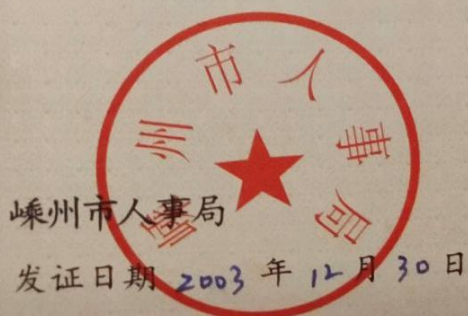 嵊州市人事局
嵊州市人事局
发证日期 2003 年 12 月 30 日